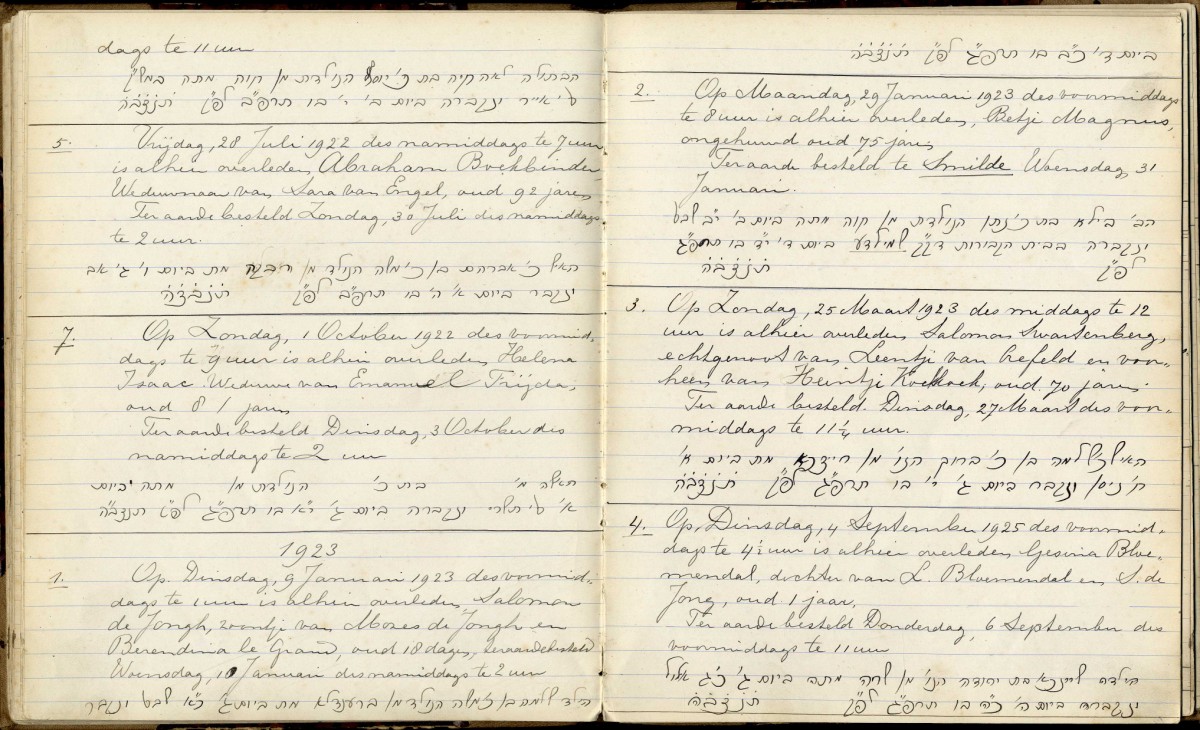 dags te 11 uur
הבתולה לאה חיה בת כ' יוסף הנולדת מן חוה מתה במש"ק
ט' אייר ונקברה ביום ב' י' בו תרפ"ב לפ"ק תנצבה
5. Vrijdag, 28 Juli 1922 des namiddags te 7 uur
is alhier overleden Abraham Boekbinder,
Weduwnaar van Sara van Engel, oud 92 jaren
Ter aarde besteld Zondag, 30 Juli des namiddags
te 2 uur.
האיש כ' אברהם בן כ' משה הנולד מן רבקה מת ביום ו' ג' אב
ונקבר ביום א' ה' בו תרפ"ב לפ"ק תנצבה
7. Op Zondag, 1 October 1922 des voormid-
dags te 9 uur is alhier overleden Helena
Isaac Weduwe van Emanuel Frijda,
oud 81 jaren
Ter aarde besteld Dinsdag, 3 October des
namiddags te 2 uur
האשה מ' בת כ' הנולדת מן מתה ביום
א' ט' תשרי ונקברה ביום ג' י"א בו תרפ"ג לפ"ק תנצבה
1923
1. Op Dinsdag, 9 Januari 1923 des voormid-
dags te 1 uur is alhier overleden Salomon
de Jongh, zoontje van Mozes de Jongh en
Berendina le Grand, oud 18 dagen, ter aarde besteld
Woensdag, 10 Januari des namiddags te 2 uur
הילד שלמה בן כ' משה הנולד מן ברענדלא מת ביום ג' כ"א שבט ונקבר
ביום ד' כ"ב בו תרפ"ג לפ"ק תנצבה
2. Op Maandag, 29 Januari 1923 des voormiddags
te 8 uur is alhier overleden, Betje Magnus,
ongehuwd oud 75 jaren
Ter aarde besteld te Smilde Woensdag 31
Januari.
הב' בילא בת כ' נתן הנולדת מן חוה מתה ביום ב' י"ב שבט
ונקברה בבית הקברות דק"ק שמילדע ביום ד' י"ד בו תרפ"ג
לפ"ק תנצבה
3. Op Zondag, 25 Maart 1923 des middags te 12
uur is alhier overleden Salomon Swartenberg,
echtgenoot van Leentje van Crefeld en voor-
heen van Heintje Koekoek, oud 70 jaren.
Ter aarde besteld Dinsdag, 27 Maart des voor-
middags te 11¼ uur.
האיש כ' שלמה בן כ' ברוך הנו' מן מת ביום א'
ח' ניסן ונקבר ביום ג' י' בו תרפ"ג לפ"ק תנצבה
4. Op, Dinsdag, 4 September 1925 des voormid-
dags te 4½ uur is alhier overleden Gesina Bloe-
mendal, dochter van L. Bloemendal en S. de
Jong, oud 1 jaar,
Ter aarde besteld Donderdag, 6 September des
voormiddags te 11 uur
הילדה שיינכא בת יהודה הנו' מן שרה מתה ביום ג' כ"ג אלול
ונקברה ביום ה' כ"ה בו תרפ"ג לפ"ק תנצבה